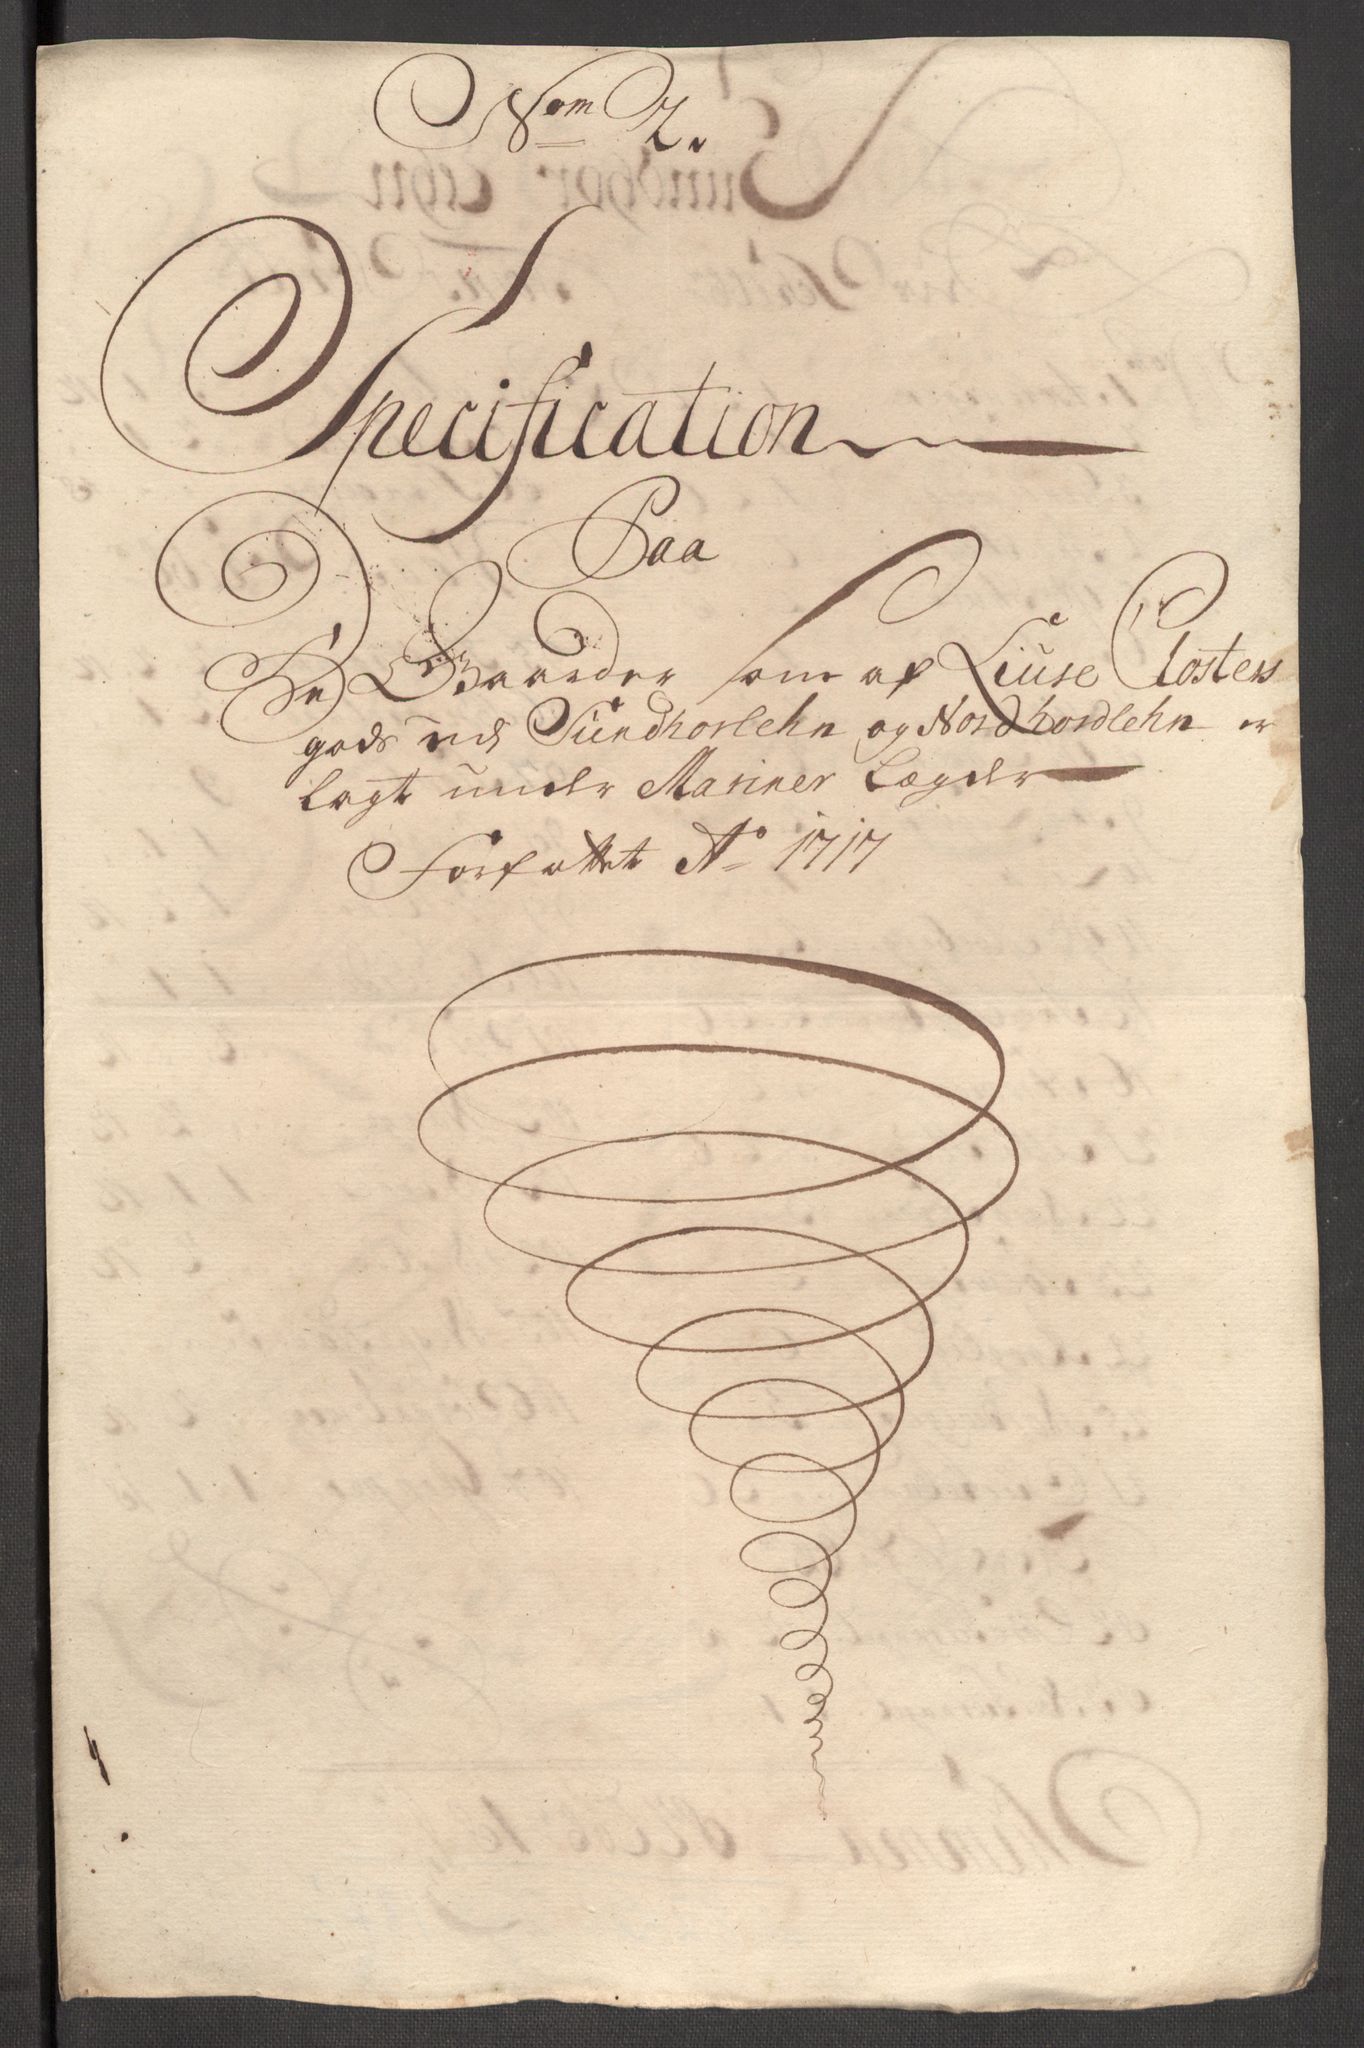 Nom 2.
Specification
Paa
De Gaarder som af Liuse Closters
gods udi Sundhorlehn og Nordhordlehn er
lagt under Mariner Lægder
Forfattet Ao 1717